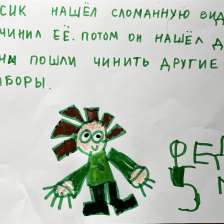 СИК НАШЁЛ СЛОМАННУЮ ВИД
ЧИНИЛ ЕЁ. ПОТОМ ОН НАШЁЛ Д
НЫ ПОШЛИ ЧИНИТЬ ДРУГИЕ
ИБОРЫ.
ФЕД
5